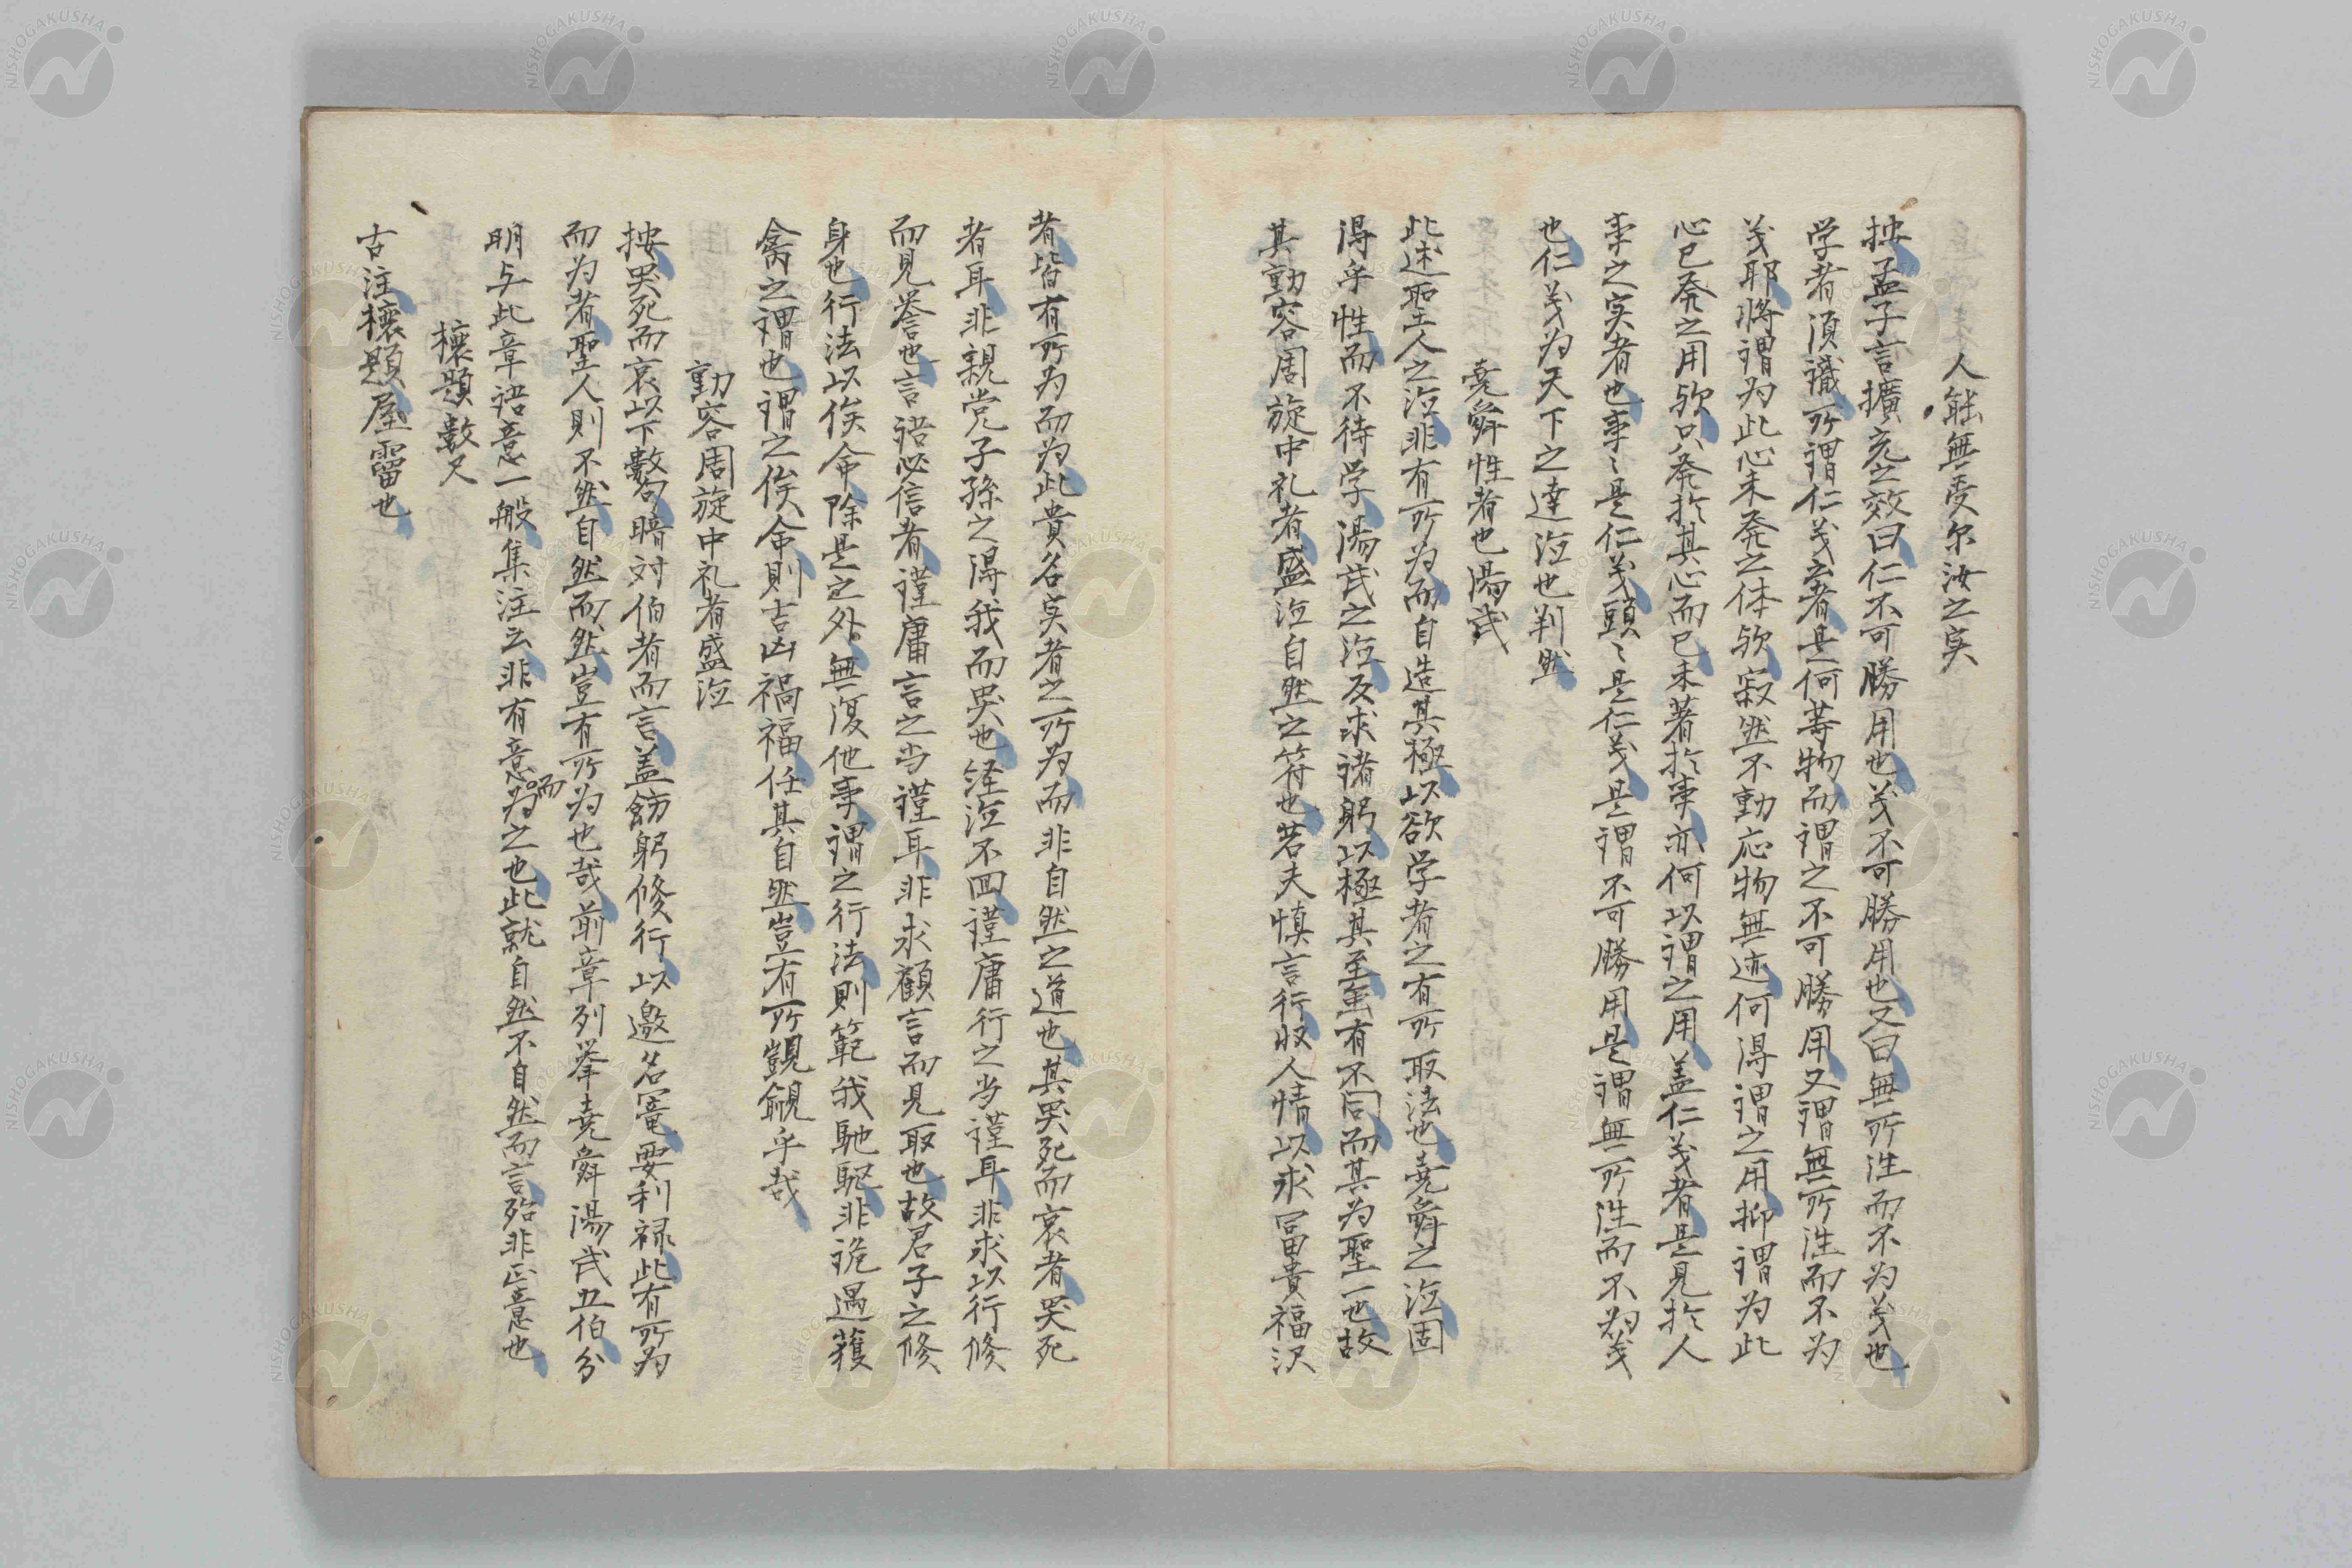 人能無受尔汝之実
按孟子言擴充之效曰仁不可勝用也义不可勝用也又曰無所往而不为义也
学者須識所謂仁义云者是何等物而謂之不可勝用又謂無所往而不为
义耶将謂为此心未発之体欤寂然不動応物無迹何得謂之用抑謂为此
心已発之用欤只発於其心而已未著於事亦何以謂之用盖仁义者是見於人
事之実者也事〻是仁义頭〻是仁义是謂不可勝用是謂無所往而不为义
也仁义为天下之達徳也判然
堯舜性者也湯武
此述聖人之徳非有所为而自造其極以欲学者之有所取法也堯舜之徳固
得乎性而不待学湯武之徳反求諸躬以極其至虽有不同而其为聖一也故
其動容周旋中礼者盛徳自然之符也若夫慎言行收人情以求冨貴福沢
者皆有所为而为此貴名実者之所为而非自然之道也其哭死而哀者哭死
者耳非親党子孫之得我而哭也経徳不回謹庸行之当謹耳非求以行修
而見誉也言语必信者謹庸言之当謹耳非求顧言而見取也故君子之修
身也行法以俟命除是之外無復他事謂之行法則範我馳駆非诡遇獲
禽之謂也謂之俟命則吉凶禍福任其自然豈有所覬覦乎哉
動容周旋中礼者盛徳
按哭死而哀以下数句暗対伯者而言盖飭躬修行以邀名寵要利禄此有所为
而为者聖人則不然自然而然豈有所为也哉前章列挙堯舜湯武五伯分
明与此章语意一般集注云非有意而为之也此就自然不自然而言殆非正意也
榱題数尺
古注榱題屋霤也